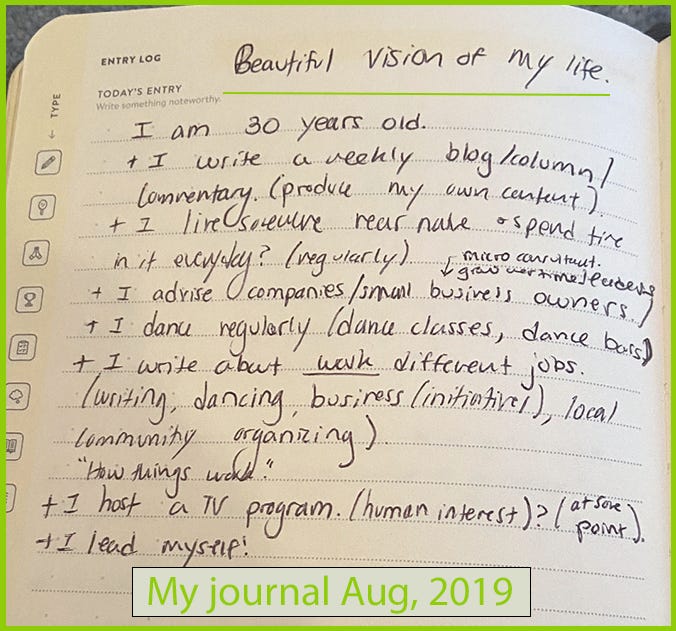 ENTRY LOG
Beautiful vision of my life.
TODAY'S ENTRY
Write something noteworthy.
← TYPE
I am 30 years old.
+ I write a weekly blog/column/
commentary. (produce my own content).
+ I live somewhere near nature + spend time
in it everyday? (regularly).
↓ micro consultant.
↓ grow over time/leadership
+ I advise companies/small business owners.
+ I dance regularly (dance classes, dance bars)
+ I write about work different jobs.
(writing, dancing, business (initiatives), local
community organizing).
"How things work."
+ I host a TV program. (human interest)? (at some
point).
+ I lead myself!
My journal Aug, 2019